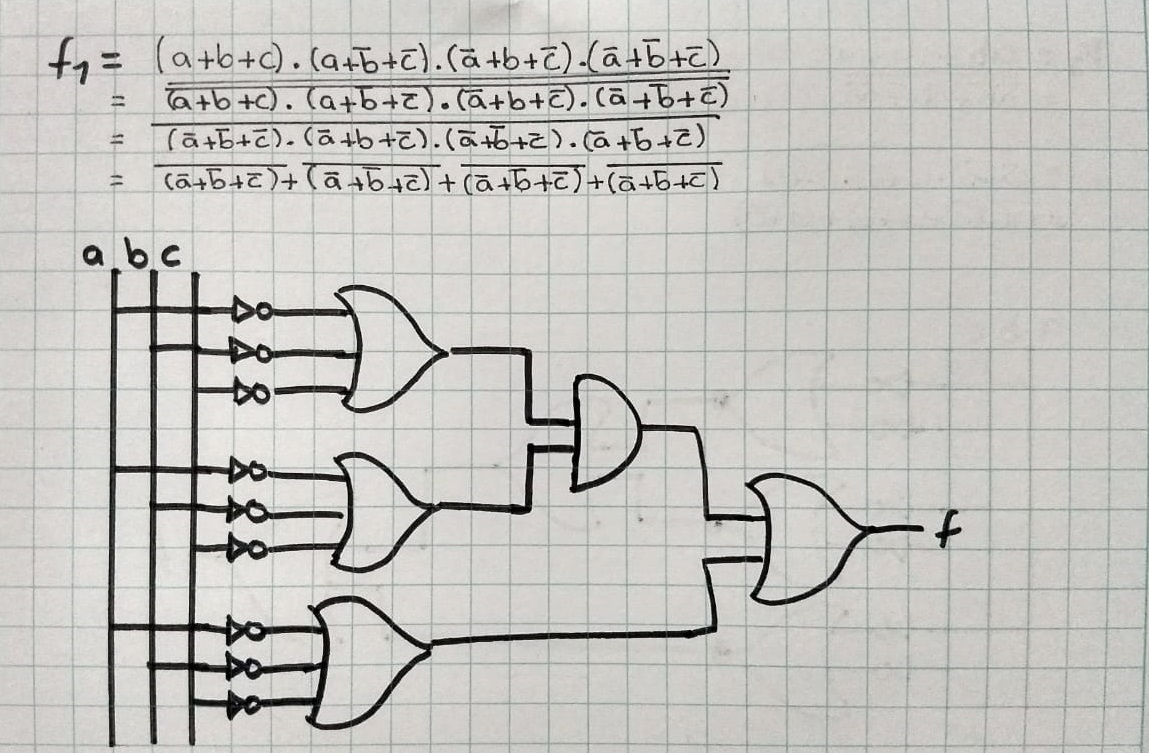 f₁ = (a+b+c).(a+b̅+c̅).(a̅+b+c̅).(a̅+b̅+c̅)
= (a+b+c).(a+b̅+c̅).(a̅+b+c̅).(a̅+b̅+c̅)
= (a̅+b̅+c̅).(a̅+b+c̅).(a̅+b̅+c̅).(a̅+b̅+c̅)
= (a̅+b̅+c̅)+(a̅+b̅+c̅)+(a̅+b̅+c̅)+(a̅+b̅+c̅)
a b c
f